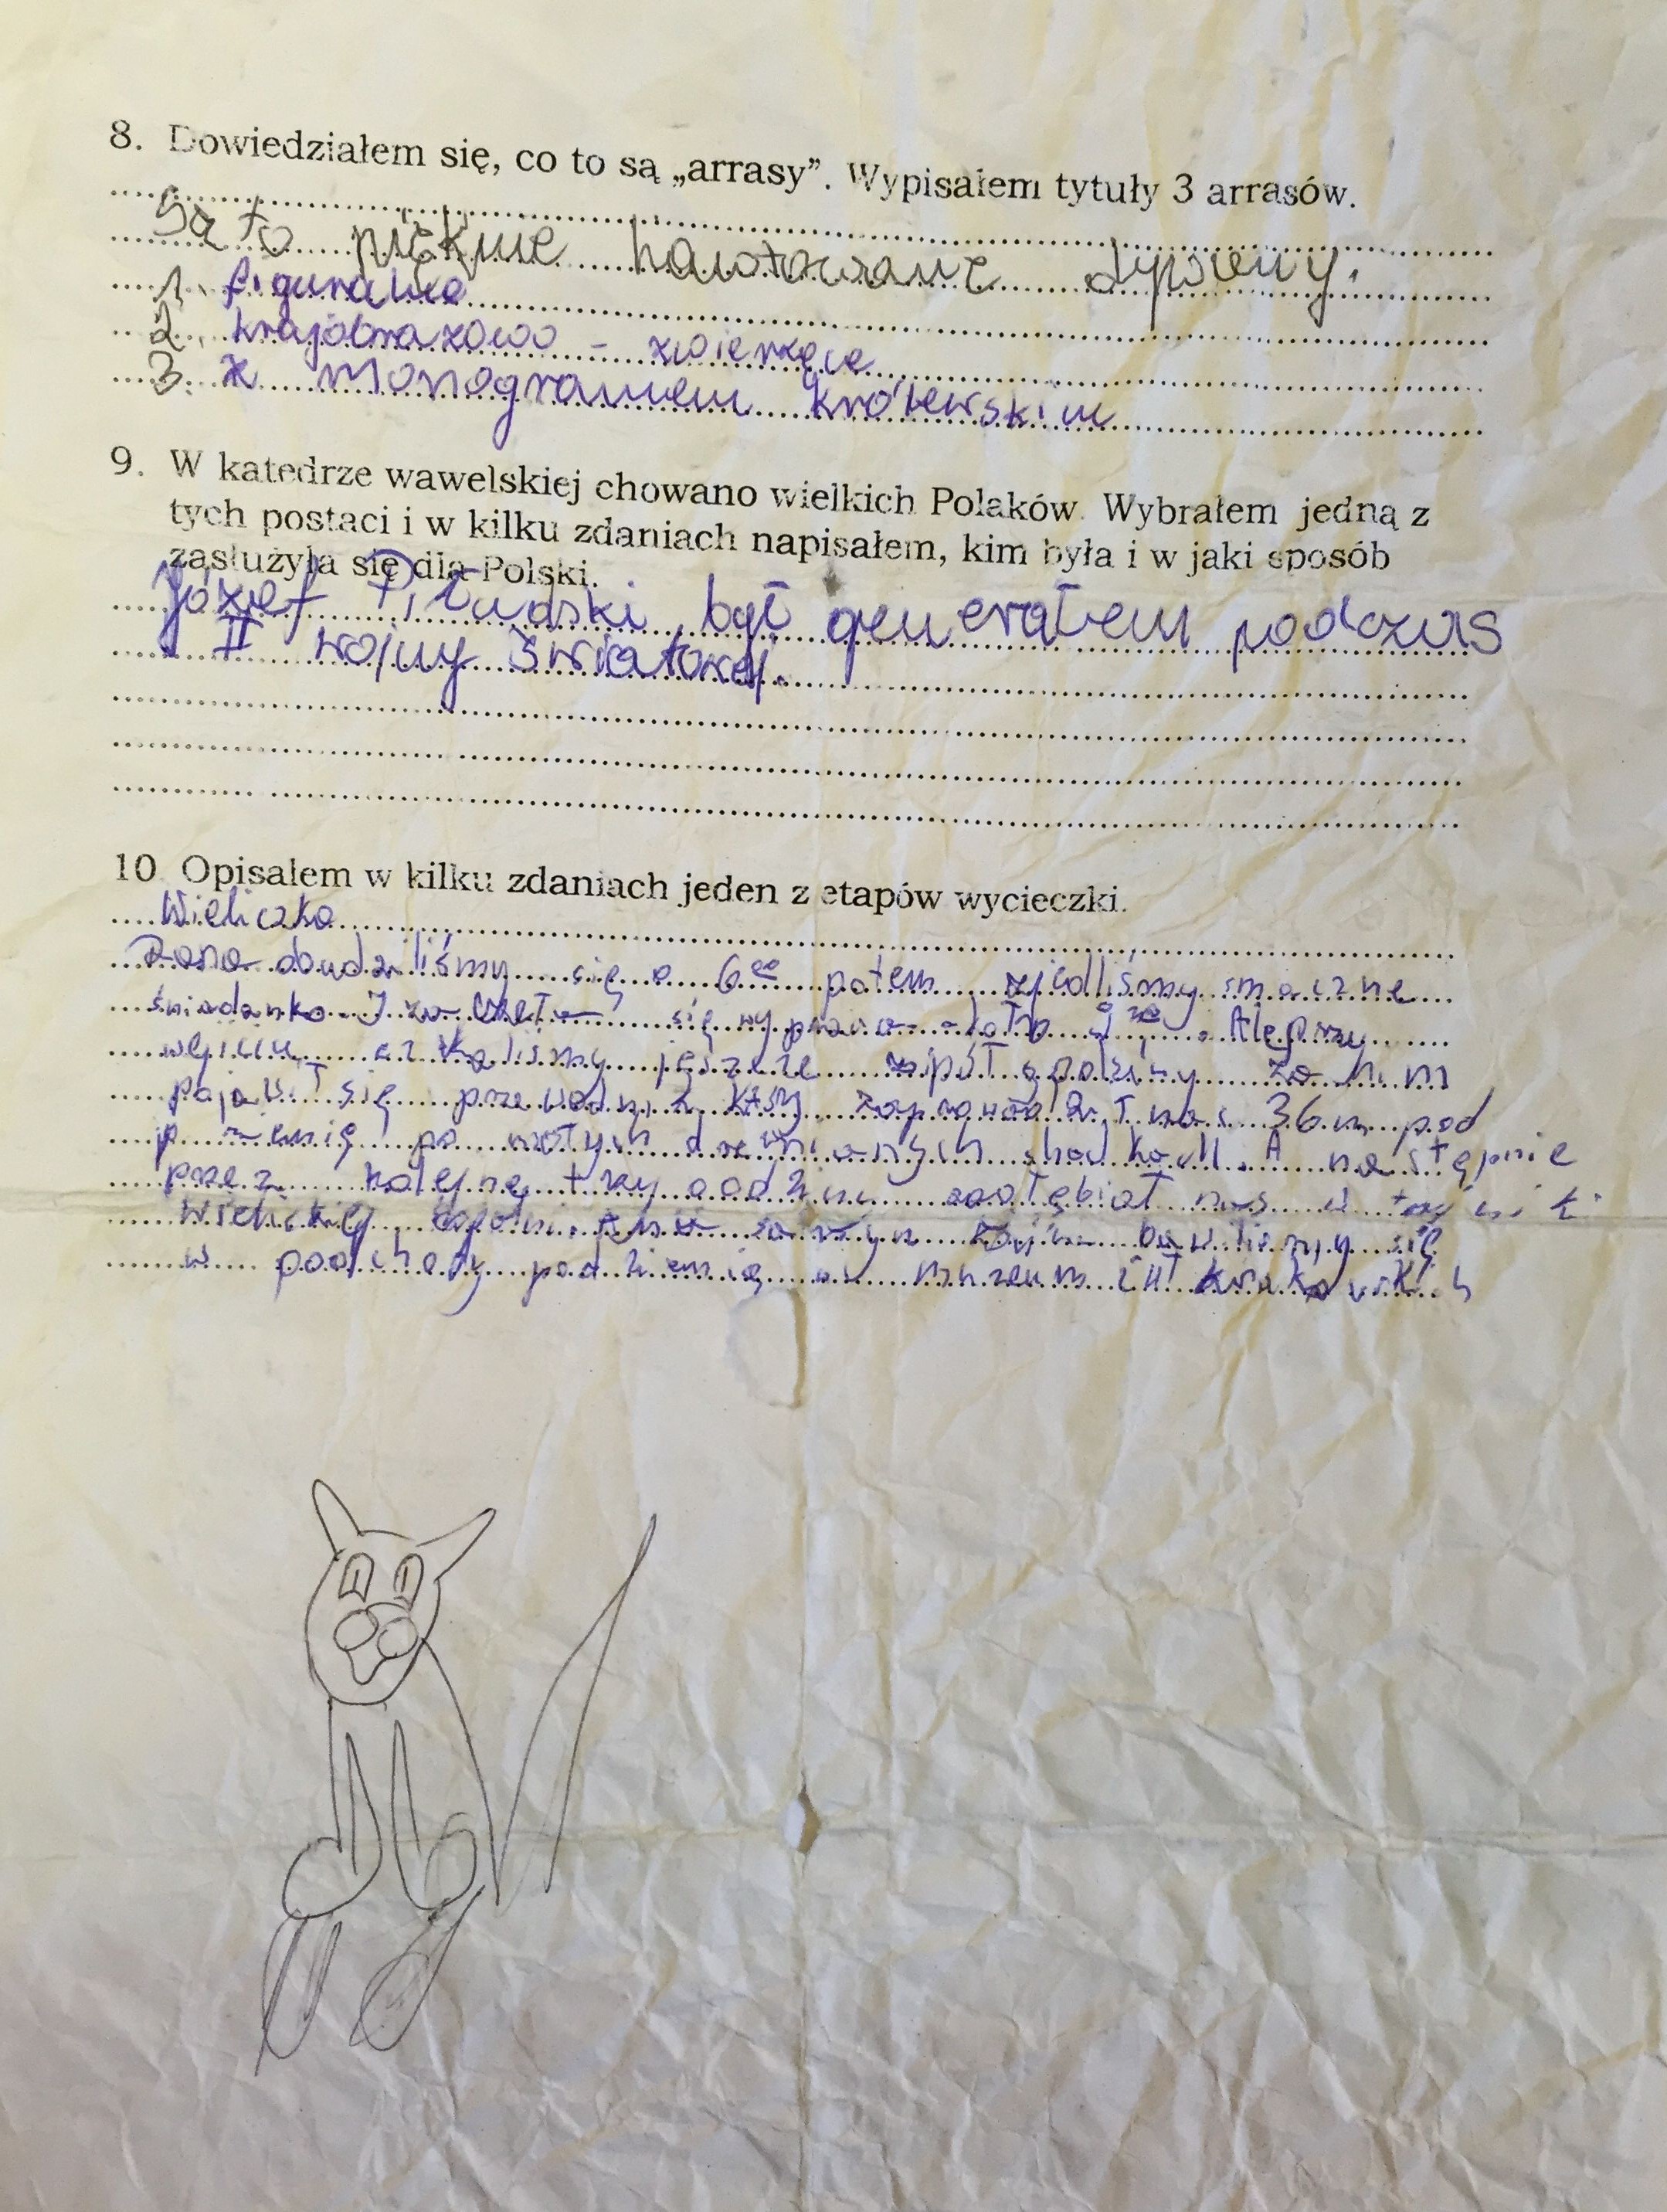 8. Dowiedziałem się, co to są „arrasy”. Wypisałem tytuły 3 arrasów.
Są to piękne hawtowane dywany.
1. figuralne
2. krajobrazowo - zwierzęce
3. z monogramem królewskim
9. W katedrze wawelskiej chowano wielkich Polaków. Wybrałem jedną z
tych postaci i w kilku zdaniach napisałem, kim była i w jaki sposób
zasłużyła się dla Polski.
Józef Piłudski był generałem podczas
II wojny światowej.
10. Opisałem w kilku zdaniach jeden z etapów wycieczki.
Wieliczka
Rano obudziliśmy się o 6⁰⁰ potem zjedliśmy smaczne
śniadanko. I się wyprawa. Ale przy
wejściu czekaliśmy jeszcze pół godziny za nim
pojawił się przewodnik, który zaprowadził nas 36 m pod
po drewnianych schodkach. A następnie
przez kolejne trzy godziny zagłębiał nas w
Wieliczki
w podróży pod ziemię w muzeum krakowskich